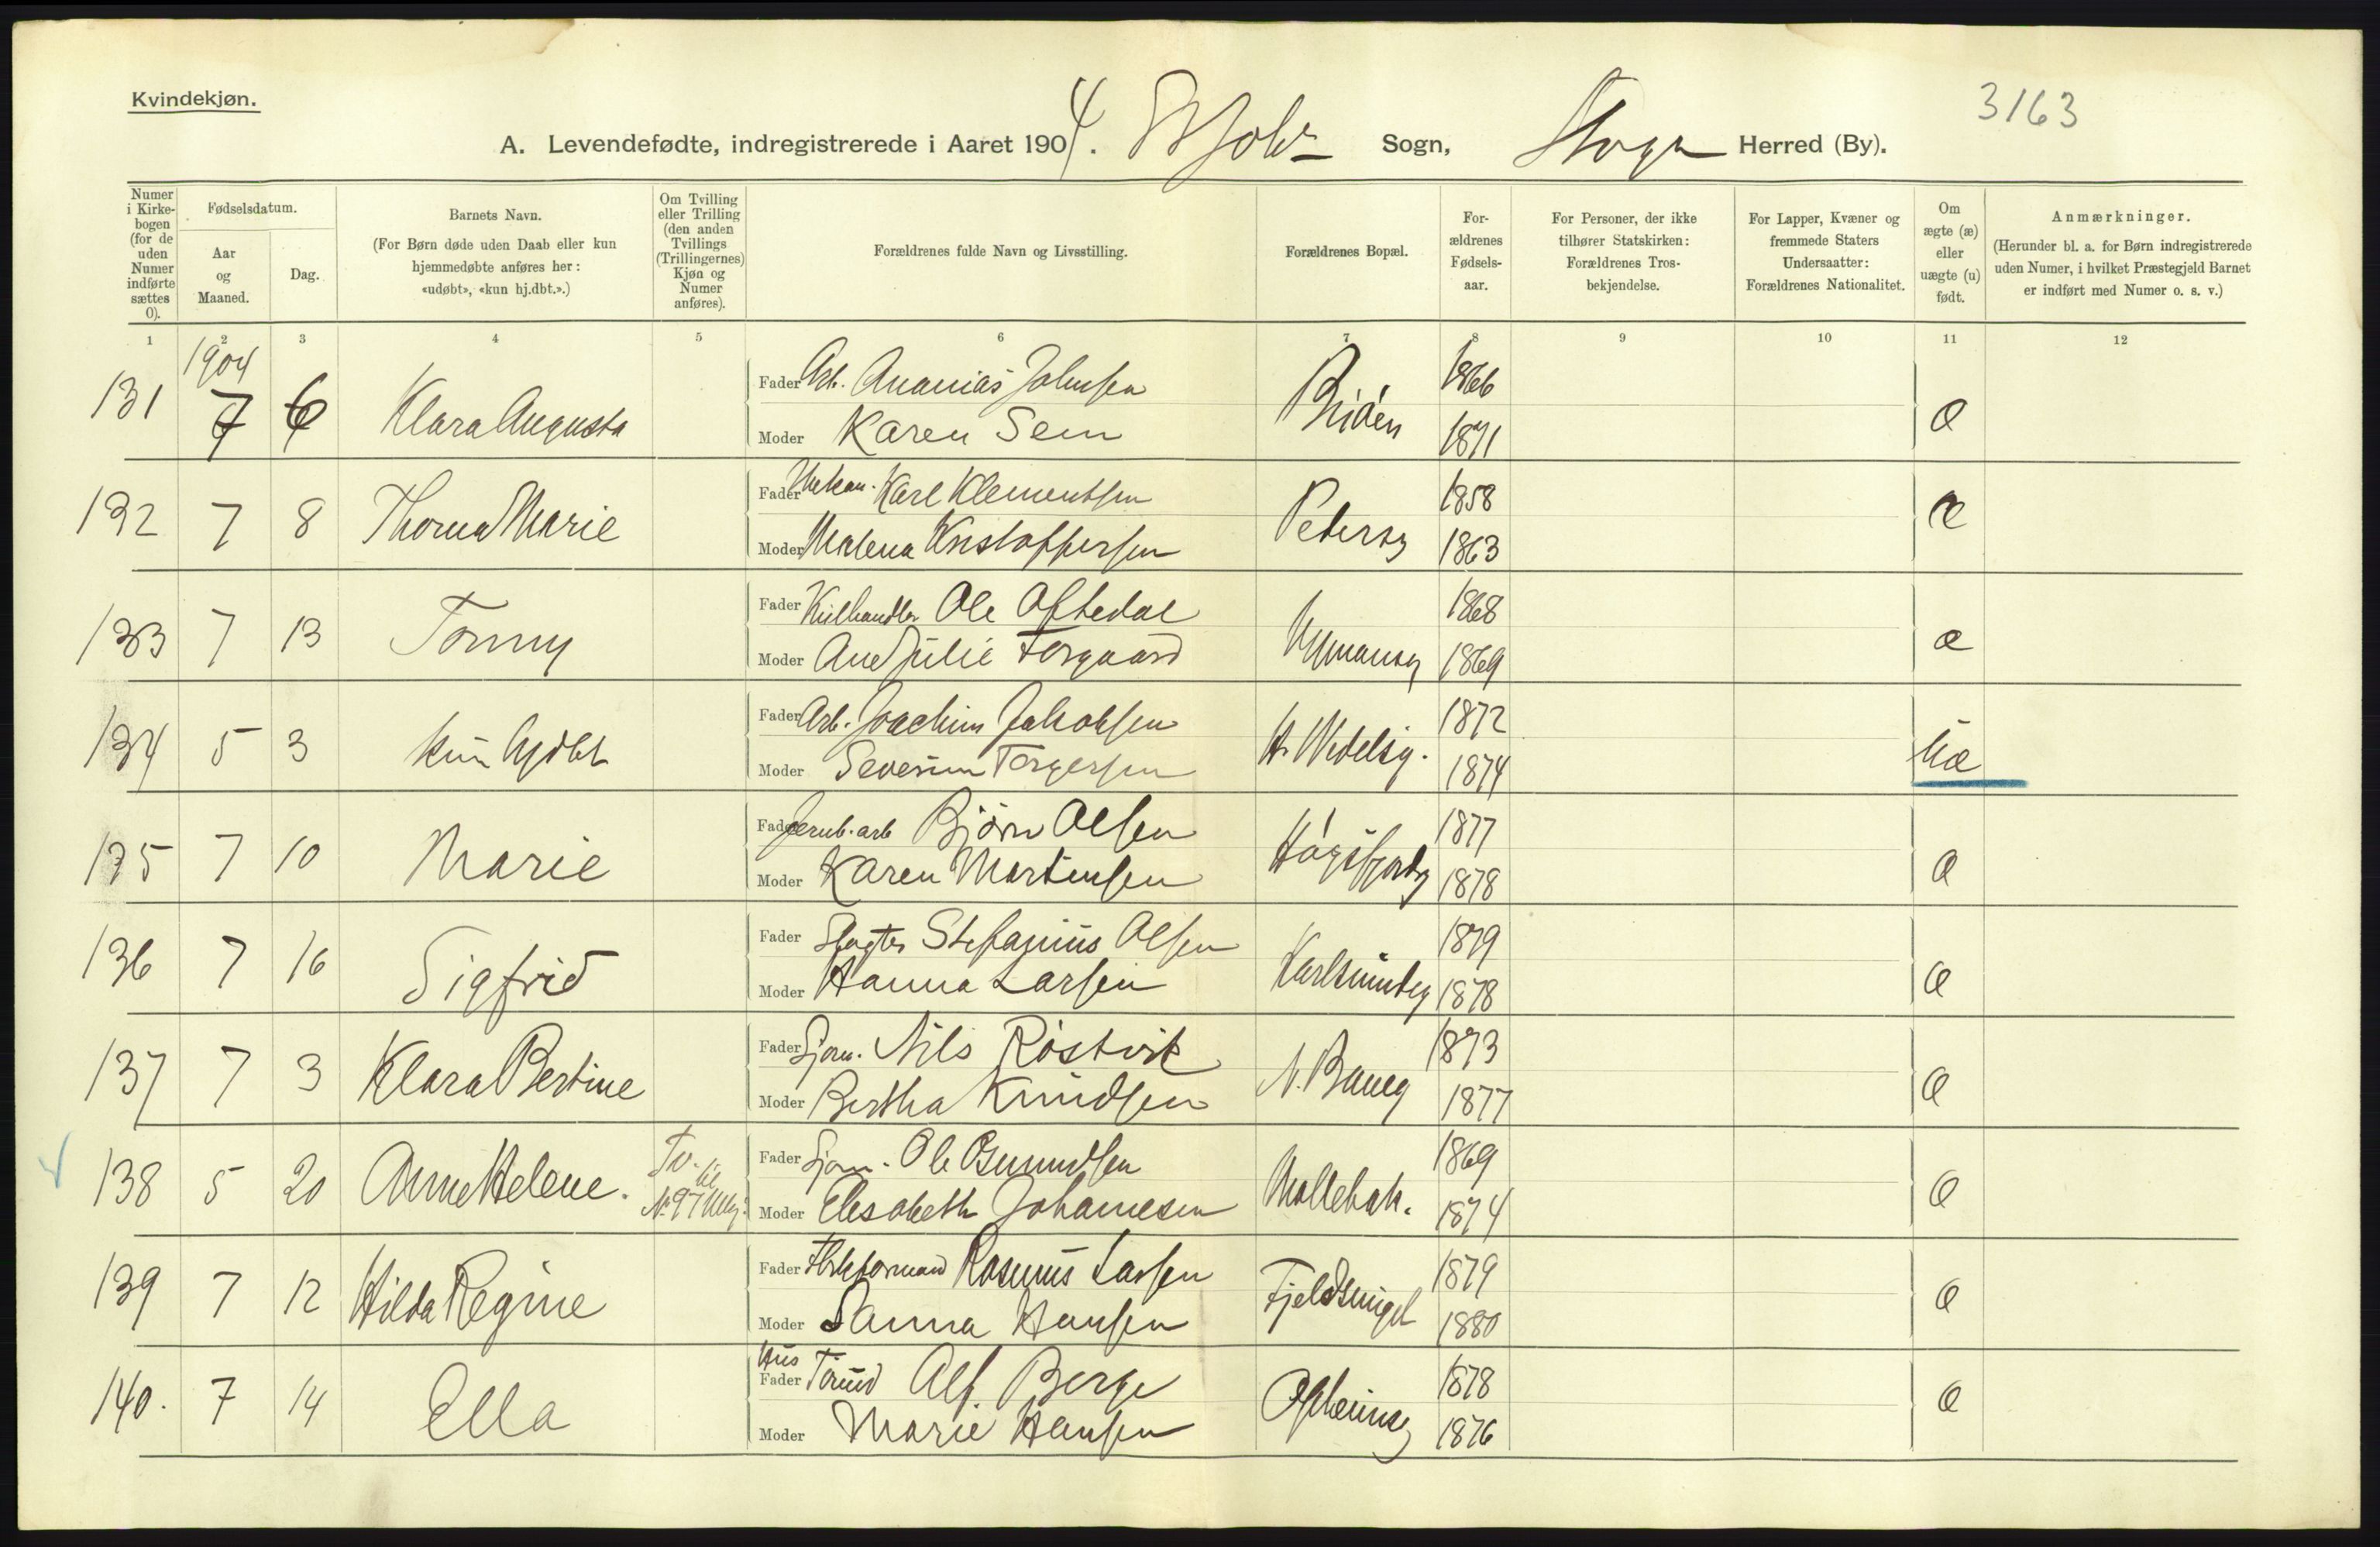 Kvindekjøn.
3163
A. Levendefødte, indregistrerede i Aaret 1904. St Joh's Sogn, Stvgr Herred (By).
Numer i Kirkebogen (for de uden Numer indførte sættes 0).
Fødselsdatum.
Aar og Maaned.
Dag.
Barnets Navn.
(For Børn døde uden Daab eller kun hjemmedøbte anføres her: «udøbt», «kun hj.dbt.».)
Om Tvilling eller Trilling (den anden Tvillings (Trillingernes) Kjøn og Numer anføres).
Forældrenes fulde Navn og Livsstilling.
Forældrenes Bopæl.
Forældrenes Fødselsaar.
For Personer, der ikke tilhører Statskirken: Forældrenes Trosbekjendelse.
For Lapper, Kvæner og fremmede Staters Undersaatter: Forældrenes Nationalitet.
Om ægte (æ) eller uægte (u) født.
Anmærkninger.
(Herunder bl. a. for Børn indregistrerede uden Numer, i hvilket Præstegjeld Barnet er indført med Numer o. s. v.)
1 2 3 4 5 6 7 8 9 10 11 12
1904
131 7 6 Klara Augusta Fader Arb. Ananias Johnsen 1866
Moder Karen Sem 1871 æ
132 7 8 Thorna Marie Fader Karl Klementsen Petersg 1858 æ
Moder Malena Kristoffersen 1863
133 7 13 Tonny Fader Ole Oftedal 1868 æ
Moder Ane Julie Torgaard Nymansg 1869
134 5 3 kun hjdbt Fader Arb. Joachim Jakobsen H. Wedelsg. 1872
Moder Severine Torgersen 1874 uæ
135 7 10 Marie Fader Jernb.arb Bjørn Olsen Høgsfjordg 1877
Moder Karen Martinsen 1878 æ
136 7 16 Sigfrid Fader Slagter Stefanius Olsen 1879
Moder Hanna Larsen Karlsmindeg 1878 æ
137 7 3 Klara Bertine Fader Sjøm. Nils Røstvik N. Baneg 1873
Moder Bertha Knudsen 1877 æ
138 5 20 Anne Helene. Tv. til Fader Sjøm. Ole Osmundsen 1869
No 97 Moder Elisabeth Johannesen Møllebak. 1874 æ
139 7 12 Hilda Regine Fader Rasmus Larsen Fjeldsmuget 1879
Moder Sanna Hansen 1880 æ
140. 7 14 Ella Hus
Fader Tømd Alf Berge 1878 æ
Moder Marie Hansen 1876